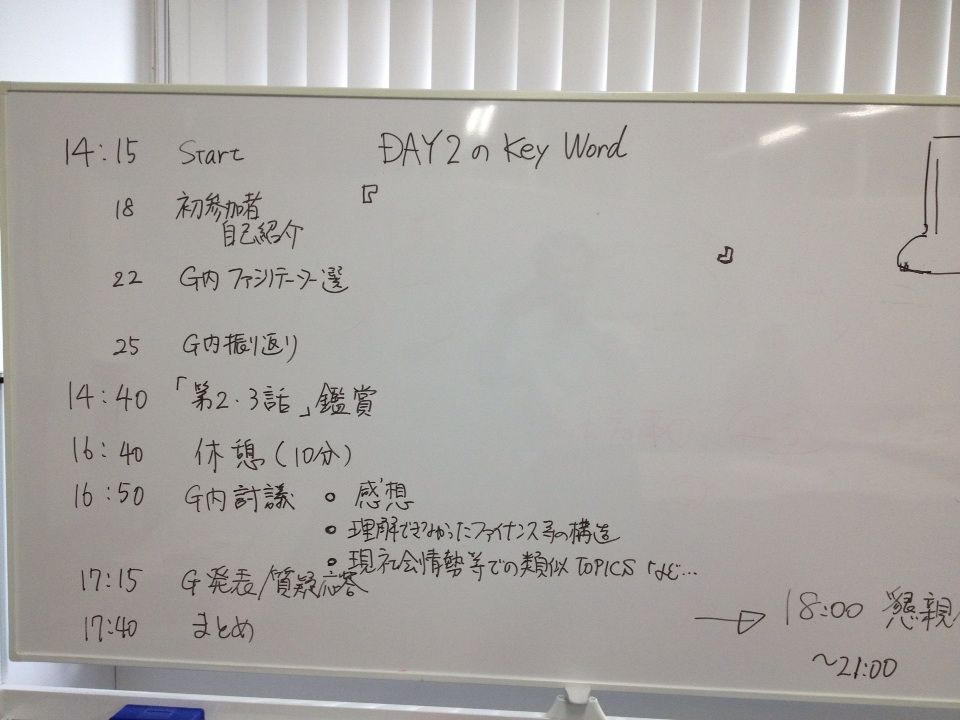 14:15 Start
DAY2のKey Word
『
18 初参加者
自己紹介
』
22 G内ファシリテーター選
25 G内振り返り
14:40 「第2・3話」鑑賞
16:40 休憩(10分)
16:50 G内討議 ・感想
・理解できなかったファイナンス等の構造
・現社会情勢等での類似TOPICS など…
17:15 G発表/質疑応答
17:40 まとめ
→ 18:00 懇親
~21:00